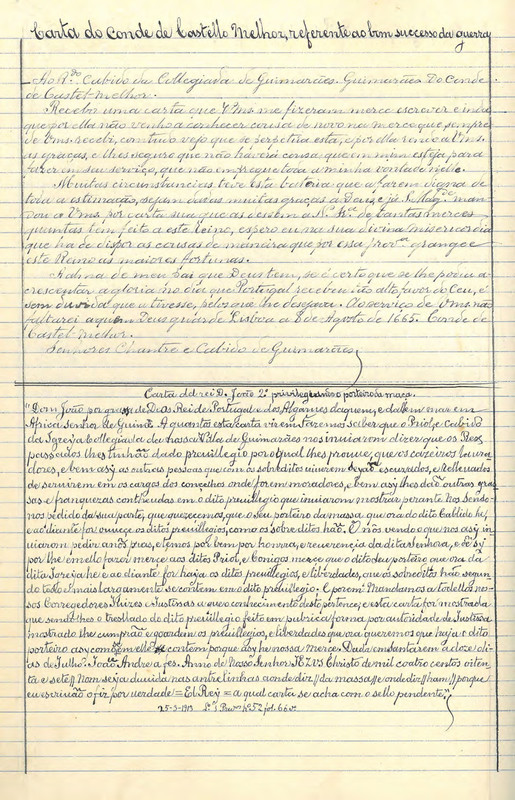 Carta do Conde de Castello Melhor, referente ao bom successo da guerra
Ao R.do Cabido da Collegiada de Guimarães. Guimarães Do Conde
de Castel-Melhor.
Recebi uma carta que V.Ms. me fizeram merce escrever e inda
que por ella não venho a conhecer cousa de novo na merce que sempre
de Vms. recebi, com tudo vejo que se perpetua esta, e por ella rendo a Vms.
as graças, e lhes seguro que não haverá cousa, que em mim esteja para
fazer em seu serviço, que não empregue toda a minha vontade nelle.
Muitas circunstancias teve esta victoria que a fazem digna de
toda a estimação, sejam dadas muitas graças a Deus, e já S. Mag.de man
dou a Vms. por carta sua que as dessem a N. Sr.a de tantas mercês
quantas tem feito a este Reino, espero eu na sua divina misericordia
que ha de dispor as cousas de maneira que por essa prov.cia grangee
este Reino as maiores fortunas.
A alma de meu Pai que Deus tem, se é certo que se lhe podia a-
crescentar a gloria no dia que Portugal recebeu tão alto favor do Ceu, é
sem duvida que a tivesse, pelo que lhe desejava. Ao serviço de Vms. não
faltarei a quem Deus guarde Lisboa a 8 de Agosto de 1665. Conde de
Castel-Melhor.
Senhores Chantre e Cabido de Guimarães
Carta d'el rei D. João 2º privilegiando o porteiro da maça.
"Dom João por graça de Deos Rei de Portugal e dos Algarves daquem, e dalem mar em
Africa Senhor de Guiné. A quantos esta carta virem fazemos saber que o Priol, e Cabido
da Igreja Collegiada da nossa Vila de Guimarães nos inviarom dizer que os Reis
passados lhes tinhão dado privillegio por o qual lhes prouve, que os cazeiros, lavra
dores, e bem asy as outras pessoas que com os sobreditos viverem sejão escuzados, e relleuados
de servirem em os cargos dos concelhos onde forem moradores, e bem asy lhes dão outras gra
sas e franquezas contheudas em o dito previllegio que inviarom mostrar perante nos sendo
nos pedido da sua parte, que quizecemos, que o seu porteiro da massa que ora do dito Cabbido he,
e ao diante for ouvese os ditos previllegios, como os sobre ditos hão. O nós vendo o que nos asy in
viarom pedir
por lhe em ello fazer merçe aos ditos Priol, e Conigos merçe que o dito seu porteiro que ora da
dita Igreja he e ao diante for haja os ditos previllegios, e liberdades, que os sobreditos hão segun
do todo mais largamente se contem em o dito previlegio. E porem Mandamos a todollos nos-
sos Corregedores Juizes e Justiças a que o conhecimento desto pertence, e esta carta for mostrada
que sendolhes o tresllado do dito previlegio feito em pubrica forma por autoridade de Justiça
mostrado lhe cumprão e goardem os previllegios, e liberdades que ora queremos que haja o dito
porteiro asy como em elle se contem porque asy he nossa merçe. Dada em Santarem a doze di
as de Julho. João Andre a fes. Anno de Nosso Senhor JEZVS Christo de mil coatro centos oiten
ta e sete // Nom seja duvida nas antrelinhas aonde diz // da massa // e onde diz // ham // porque
eu escrivão o fiz por verdade = El Rey = a qual carta se acha com o sello pendente."
25-3-1913